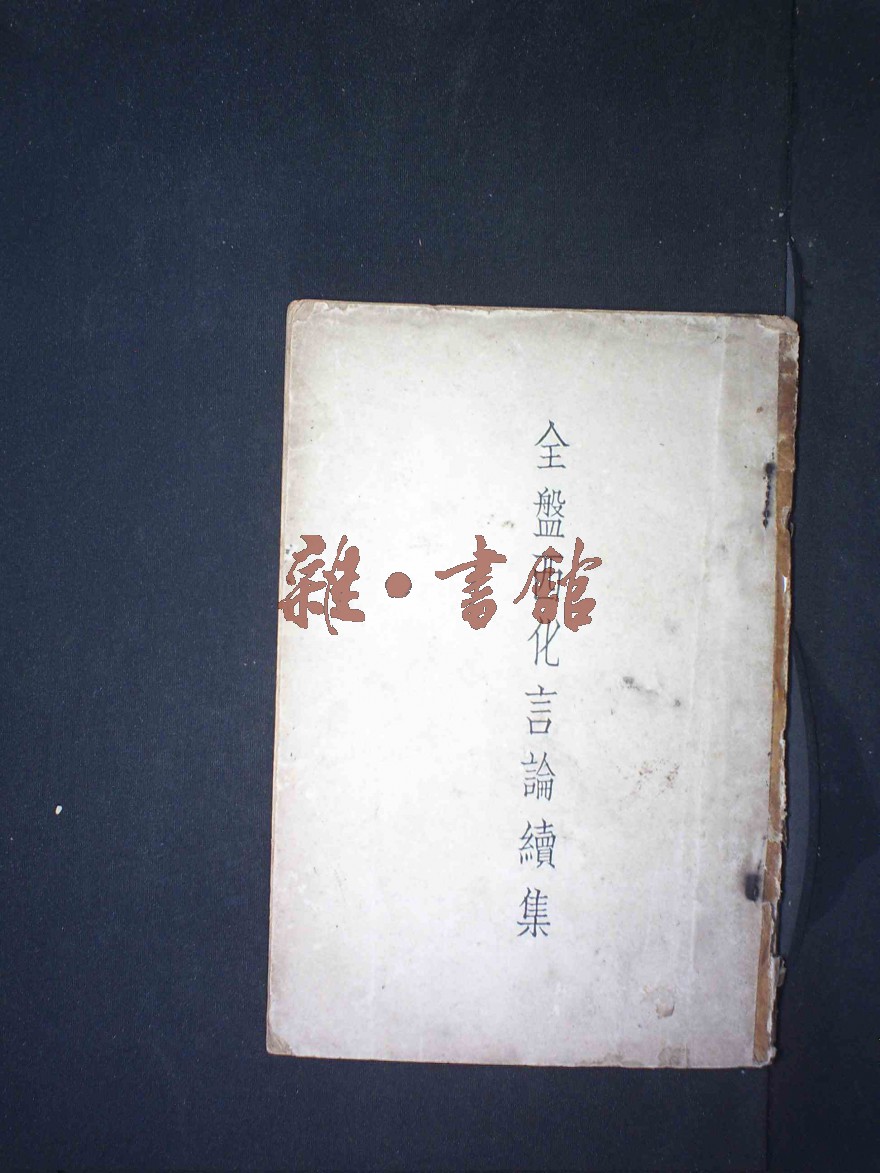 全盤西化言論續集
雜・書館